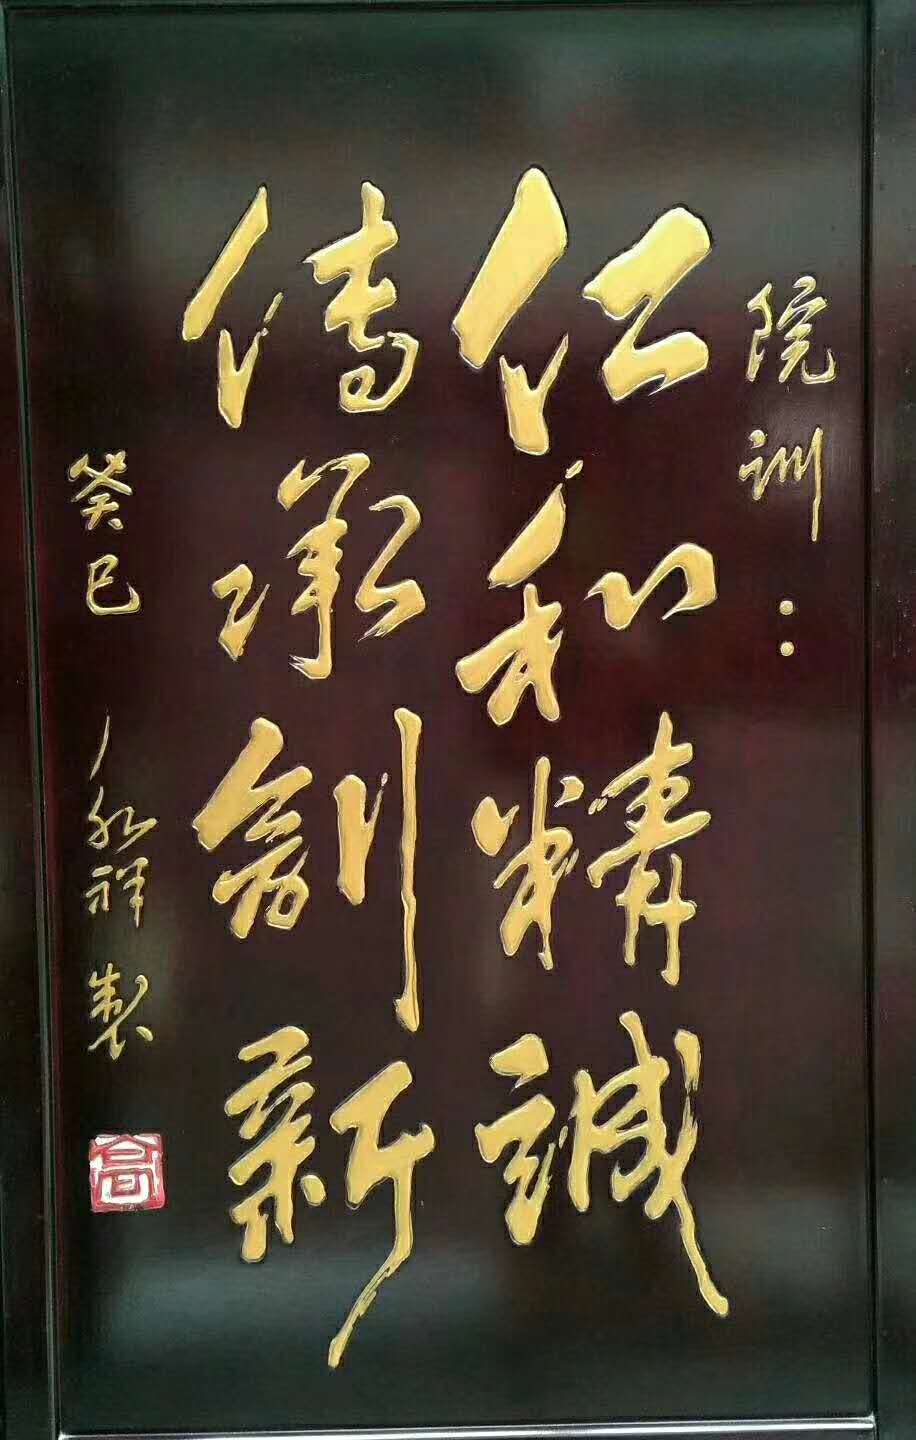 院訓：
仁和精誠
傳承創新
癸巳 永祥製